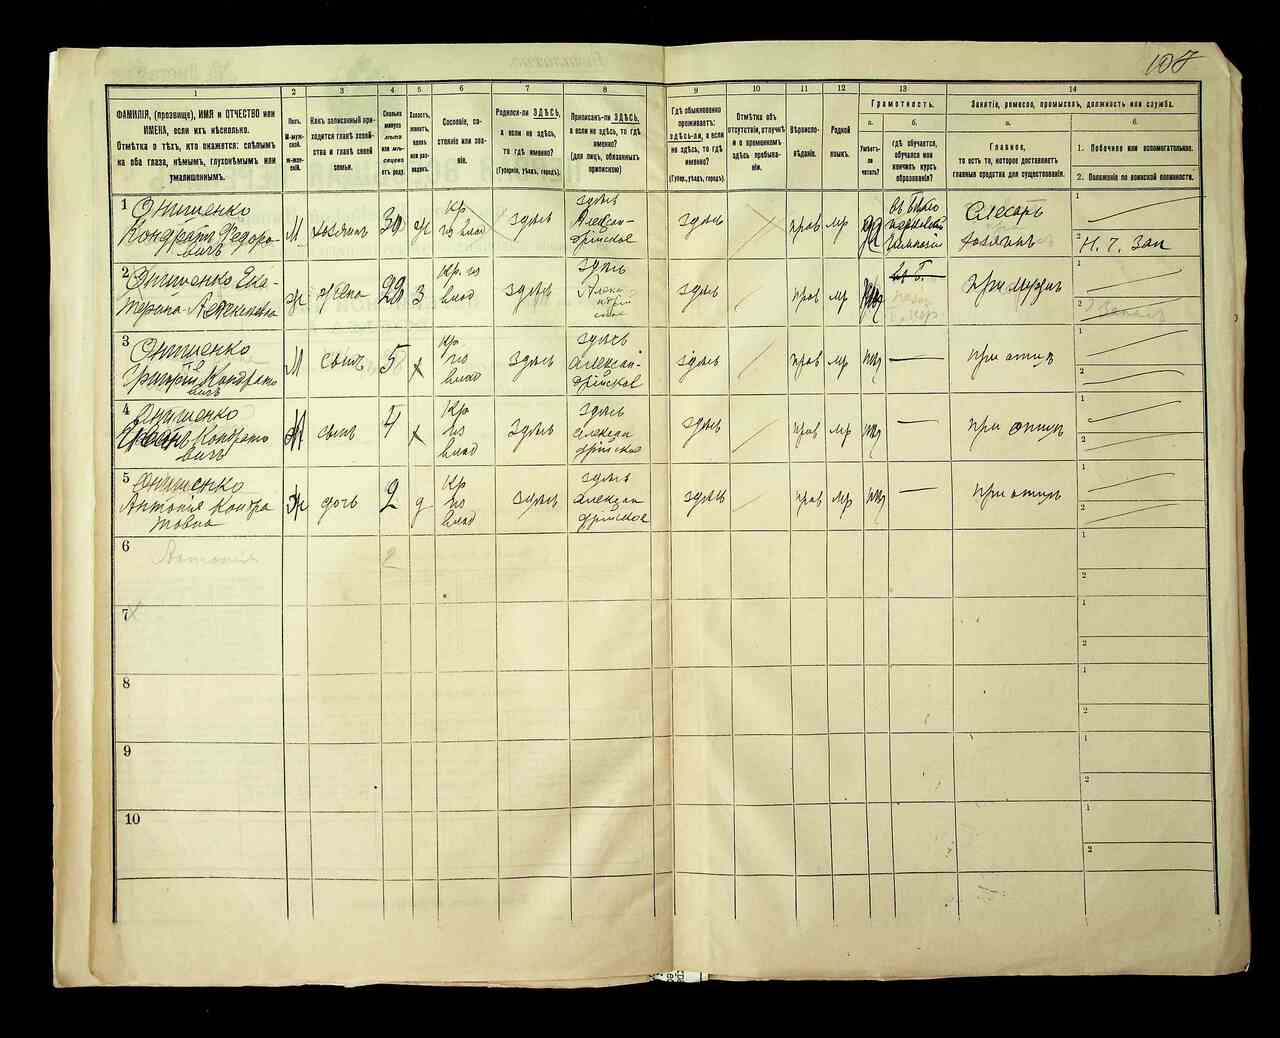 107
1 2 3 4 5 6 7 8 9 10 11 12 13 14
ФАМИЛІЯ, (прозвище), ИМЯ и ОТЧЕСТВО или
ИМЕНА, если ихъ нѣсколько.
Отмѣтка о тѣхъ, кто окажется: слѣпымъ
на оба глаза, нѣмымъ, глухонѣмымъ или
умалишеннымъ.
Полъ.
М-муж-
ской.
Ж-жен-
скій.
Какъ записанный при-
ходится главѣ хозяй-
ства и главѣ своей
семьи.
Сколько
минуло
лѣтъ
или мѣ-
сяцевъ
отъ роду.
Холостъ,
женатъ,
вдовъ
или раз-
веденъ.
Сословіе, со-
стояніе или зва-
ніе.
Родился-ли ЗДѢСЬ,
а если не здѣсь,
то гдѣ именно?
(Губернія, уѣздъ, городъ).
Приписанъ-ли ЗДѢСЬ,
а если не здѣсь, то гдѣ
именно?
(для лицъ, обязанныхъ
припискою)
Гдѣ обыкновенно
проживаетъ:
здѣсь-ли, а если
не здѣсь, то гдѣ
именно?
(Губер., уѣздъ, городъ).
Отмѣтка объ
отсутствіи, отлучкѣ
и о временномъ
здѣсь пребыва-
ніи.
Вѣроиспо-
вѣданіе.
Родной
языкъ.
Грамотность.
а.
Умѣетъ-
ли
читать?
б.
гдѣ обучается,
обучался или
кончилъ курсъ
образованія?
Занятіе, ремесло, промыселъ, должность или служба.
а.
Главное,
то есть то, которое доставляетъ
главныя средства для существованія.
б.
1. Побочное или вспомогательное.
2. Положеніе по воинской повинности.
1
Онищенко
Кондратъ Федоро-
вичъ
М
хозяинъ
39
ж
Кр
из влад
здѣсь
здѣсь
Алексан-
дрійское
здѣсь
прав
мр
Слесарь
хозяинъ
1
2 Н. ч. Зап
2
Онищенко Ека-
терина Алексѣевна
ж
жена
28
З
Кр. из
влад
здѣсь
здѣсь
здѣсь
прав
мр
при мужѣ
1
2
3
Онищенко
Григорій Кондрато
вичъ
М
сынъ
5
х
Кр.
из
влад
здѣсь
здѣсь
Алексан-
дрійское
здѣсь
прав
мр
при отцѣ
1
2
4
Онищенко
Кондрато
вичъ
М
сынъ
4
х
Кр
из
влад
здѣсь
здѣсь
Алексан
дрійское
здѣсь
прав
мр
при отцѣ
1
2
5
Онищенко
Антонія Кондра
товна
Ж
дочь
2
д
Кр
из
влад
здѣсь
здѣсь
Алексан
дрійское
здѣсь
прав
мр
при отцѣ
1
2
6
Антонія
2
1
2
7
1
2
8
1
2
9
1
2
10
1
2